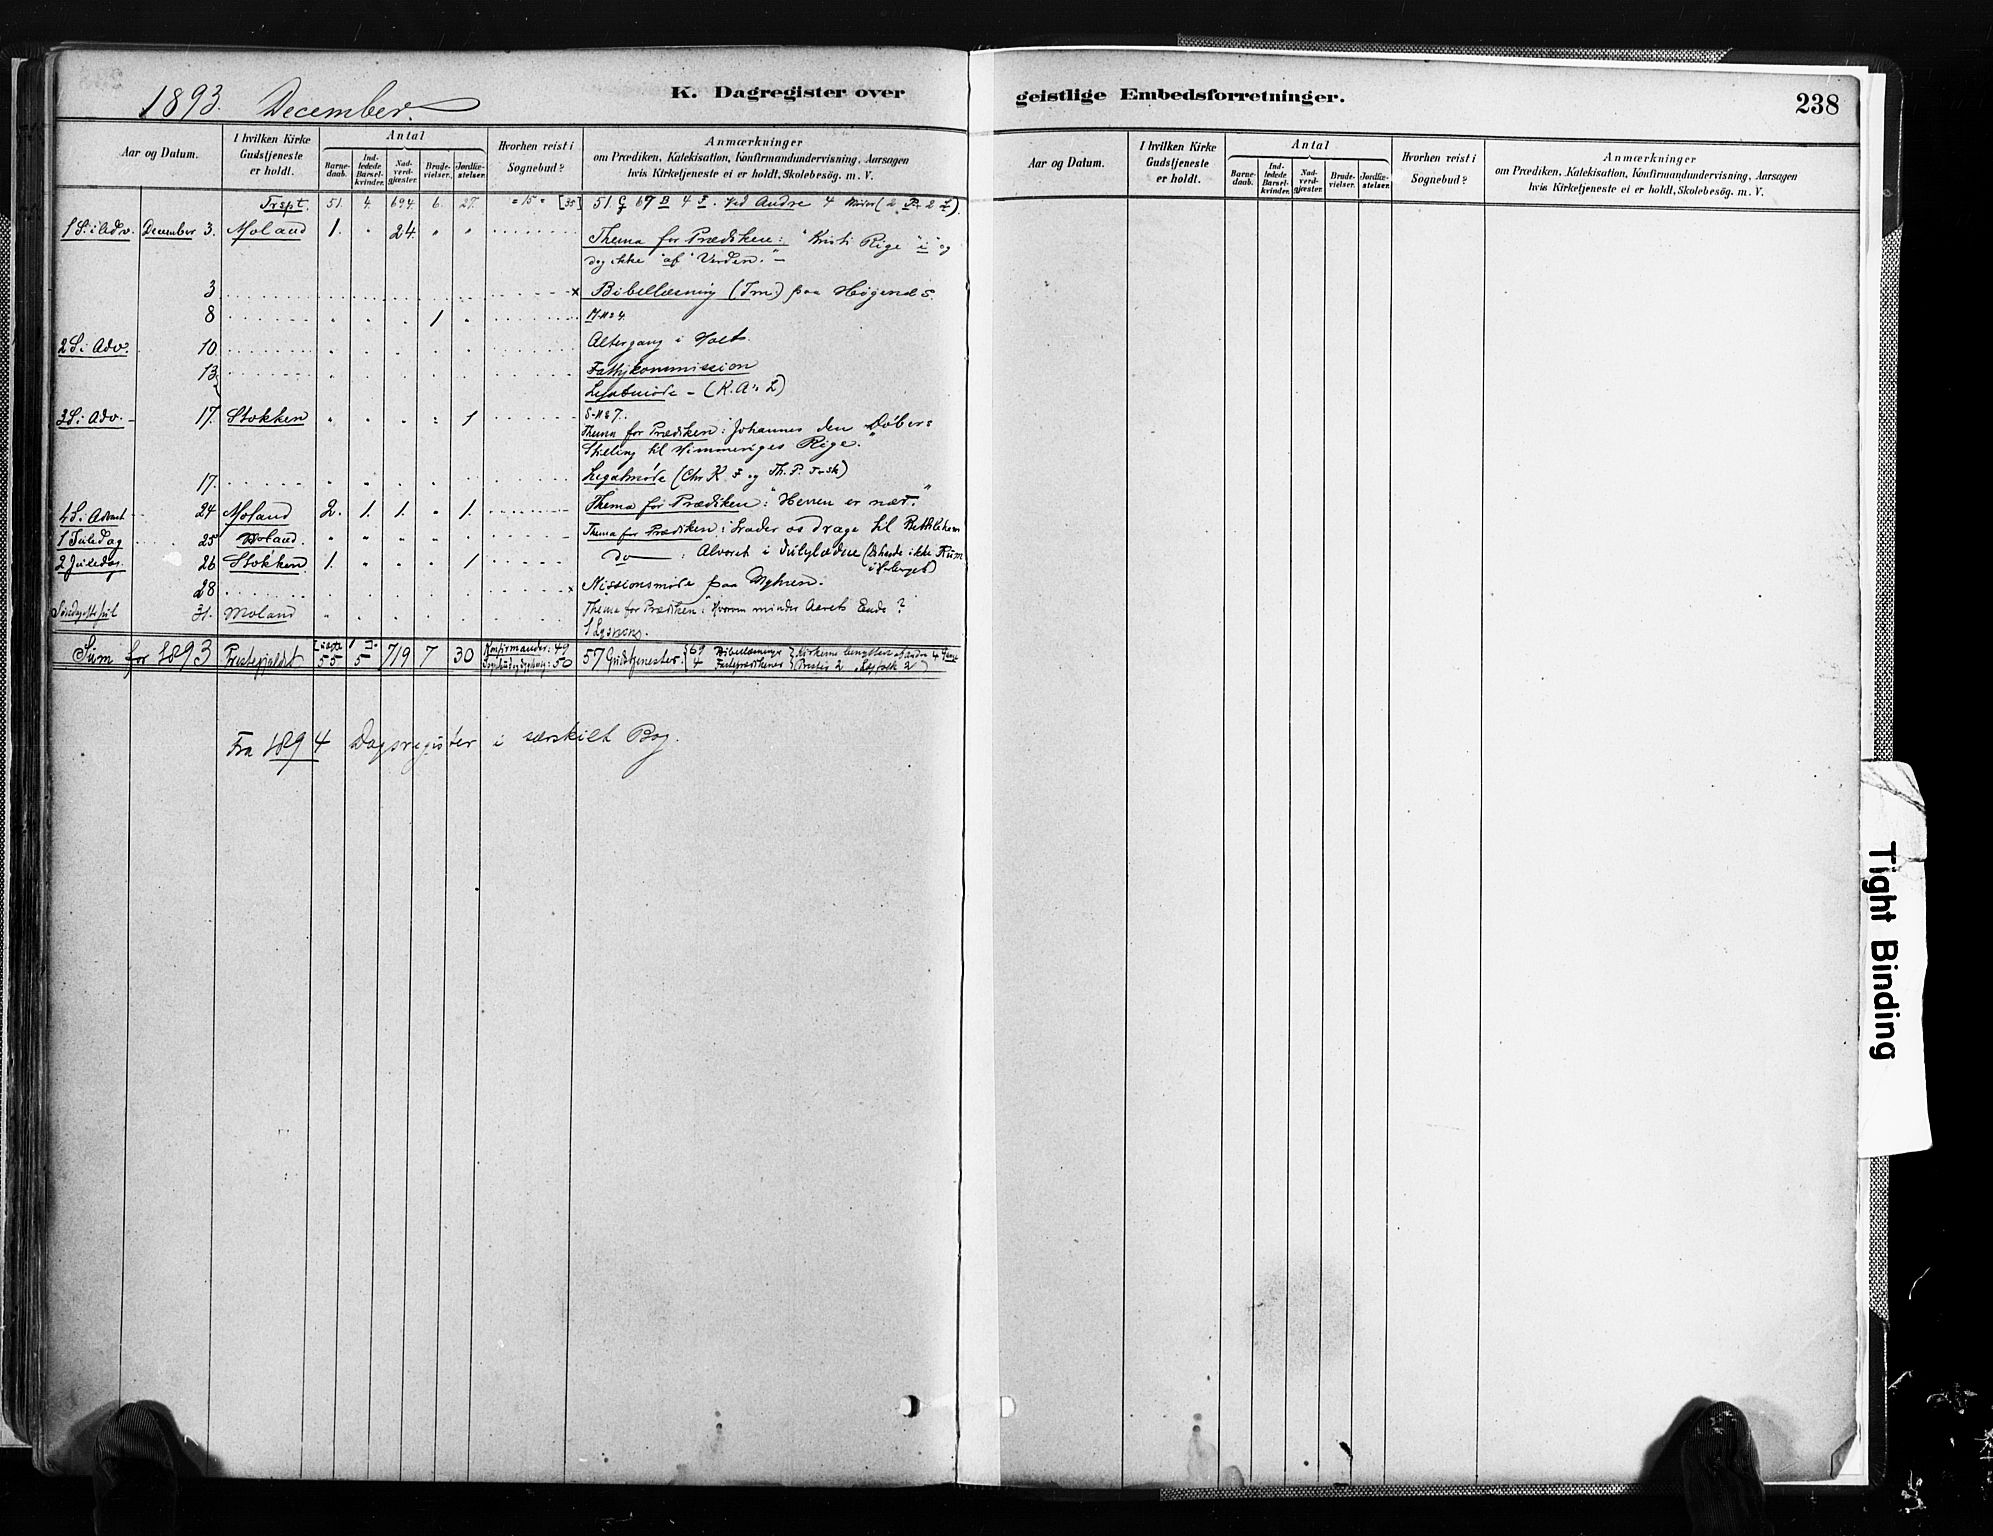 1893. December.
K. Dagregister over geistlige Embedsforretninger.
238
Aar og Datum. I hvilken Kirke Gudstjeneste er holdt. Antal Barnedaab. Indledede Barselkvinder. Nadverdgjæster. Brudevielser. Jordfæstelser. Hvorhen reist i Sognebud? Anmærkninger om Prædiken, Katekisation, Konfirmandundervisning, Aarsagen hvis Kirketjeneste ei er holdt, Skolebesög. m. V.
Aar og Datum. I hvilken Kirke Gudstjeneste er holdt. Antal Barnedaab. Indledede Barselkvinder. Nadverdgjæster. Brudevielser. Jordfæstelser. Hvorhen reist i Sognebud? Anmærkninger om Prædiken, Katekisation, Konfirmandundervisning, Aarsagen hvis Kirketjeneste ei er holdt, Skolebesög. m. V.
Trspt. 51. 4. 694. 6. 27. "15" [35] 51 G 67 B 4 F. Ved Andre 4 (2 P. 2 L).
1 S. i Adv. December 3. Moland 1. " 24. " " Thema for Prædiken: "Kristi Rige "i" og
dog ikke "af" Verden."
3 x Bibellæsning (Tm.) paa
8 1
2 S. i Adv. 10 Altergang i Holt.
13 Fattigkommission
(K. A. L)
3 S. i Adv. 17. Stokken " " " " 1
Thema for Prædiken: Johannes den Døbers
Stilling til Himmeriges Rige."
17. Legatmøde (Chr K. F og Th. P. Tvsk)
4 S. i Advent 24 Moland 2. 1. 1. " 1. Thema for Prædiken: "Herren er nær."
1 Juledag 25 Moland. Thema for Prædiken: Lader os drage til Bethlehem
2 Juledag. 26 Stokken 1. " " " 1 do : Alvoret i Juleglæden (De havde ikke Rum
i Herberget)
28 x Missionsmøde paa Myhren.
Søndag efter Jul 31. Moland Thema for Prædiken: Hvorom minder Aarets Ende?
Sum for 1893 Prestegjeldet 55 5 719 7 30 Konfirmander: 49 57 Gudstjenester. 69 Bibellæsninger Kirkerne benyttet af Andre 4 Gange
50 4 Fasteprædikener Prester 2 Lægfolk 2
Fra 1894 Dagsregister i særskilt Bog.
Tight Binding